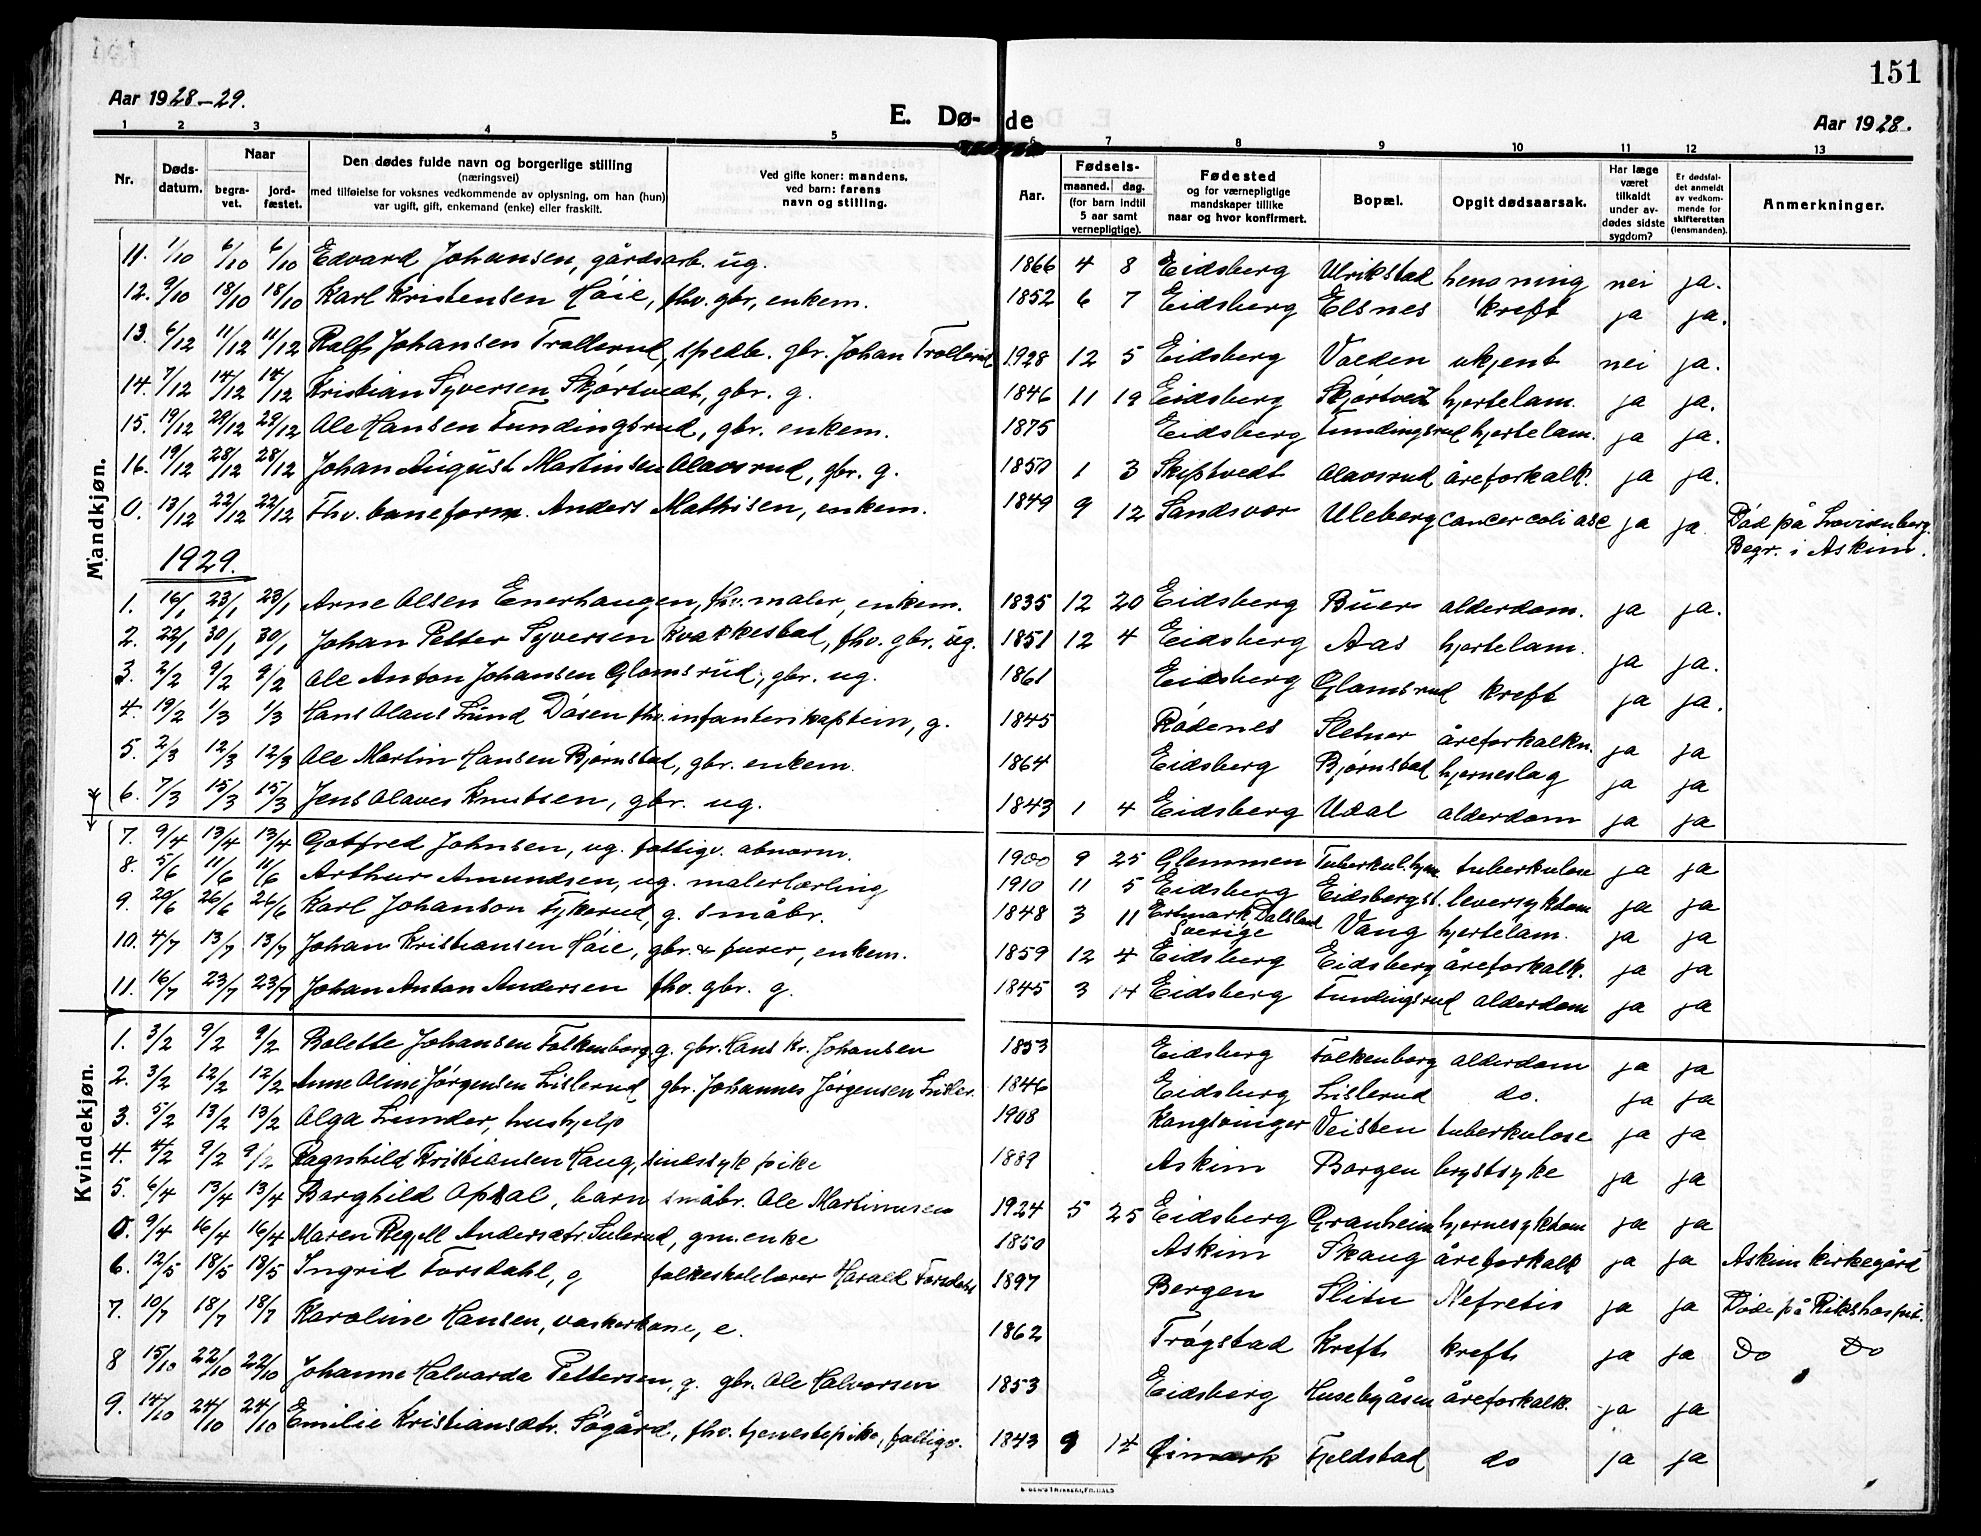 151
Aar 1928-29.
E. Dø-de
Aar 1928.
1 2 3 4 5 6 7 8 9 10 11 12 13
Nr.
Døds-datum.
Naar
begra-vet.
jord-fæstet.
Den dødes fulde navn og borgerlige stilling
(næringsvei)
med tilføielse for voksnes vedkommende av oplysning, om han (hun)
var ugift, gift, enkemand (enke) eller fraskilt.
Ved gifte koner: mandens,
ved barn: farens
navn og stilling.
Aar.
Fødsels-
maaned. dag.
(for barn indtil
5 aar samt
vernepligtige).
Fødested
og for værnepligtige
mandskaper tillike
naar og hvor konfirmert.
Bopæl.
Opgit dødsaarsak.
Har læge
været
tilkaldt
under av-
dødes sidste
sygdom?
Er dødsfal-
det anmeldt
av vedkom-
mende for
skifteretten
(lensmanden).
Anmerkninger.
Mandkjøn.
11. 1/10 6/10 6/10 Edvard Johansen, gårdsarb. ug. 1866 4 8 Eidsberg Ulrikstad hengning nei ja.
12. 9/10 18/10 18/10 Karl Kristensen Høie, fhv. gbr, enkem. 1852 6 7 Eidsberg Elsnes kreft ja ja.
13. 6/12 11/12 11/12 Ralf Johansen Trollerud, spedb. gbr. Johan Trollerud 1928 12 5 Eidsberg Volden ukjent nei ja.
14. 7/12 14/12 14/12 Kristian Syversen Skjørtvedt, gbr. g. 1846 11 19 Eidsberg Skjørtvedt hjertelam. ja ja.
15. 19/12 29/12 29/12 Ole Hansen Tundingsrud, gbr. enkem. 1875 Eidsberg Tundingsrud hjertelam. ja ja.
16. 19/12 28/12 28/12 Johan August Martinsen Olavsrud, gbr. g. 1850 1 3 Skiptvedt Olavsrud åreforkalk. ja ja.
0. 13/12 22/12 22/12 Fhv. baneform. Anders Mathisen, enkem. 1849 9 12 Sandsvær Uleberg cancer coli asc ja ja. Død på Lovisenberg.
Begr. i Askim.
1929.
1. 16/1 23/1 23/1 Arne Olsen Enerhaugen, fhv. maler, enkem. 1835 12 20 Eidsberg Buer alderdom. ja ja.
2. 22/1 30/1 30/1 Johan Petter Syversen Kvakkestad, fhv. gbr. ug. 1851 12 4 Eidsberg Aas hjertelam. ja ja.
3. 2/2 9/2 9/2 Ole Anton Johansen Glomsrud, gbr. ug. 1861 Eidsberg Glomsrud kreft ja ja.
4. 19/2 1/3 1/3 Hans Olaus Lund Dåsen fhv. infanterikaptein, g. 1845 Rødenes Sletner åreforkalkn. ja ja
5. 2/3 12/3 12/3 Ole Martin Hansen Bjørnstad, gbr. enkem. 1864 Eidsberg Bjørnstad hjerneslag ja ja
6. 7/3 15/3 15/3 Jens Olaves Knutsen, gbr. ug. 1843 1 4 Eidsberg Udal alderdom ja ja
7. 9/4 13/4 13/4 Gotfred Johnsen, ug. fattigv. abnorm. 1900 9 25 Glemmen Tuberkul.hjm tuberkulose ja ja
8. 5/6 11/6 11/6 Arthur Amundsen, ug. malerlærling 1910 11 5 Eidsberg Eidsbergst. leversykdom ja ja
9. 20/6 26/6 26/6 Karl Johanson Tykerud, g. småbr. 1848 3 11 Dalsland Sverige Vang hjertelam. ja ja
10. 4/7 13/7 13/7 Johan Kristiansen Høie, gbr. & furer, enkem. 1859 12 4 Eidsberg Eidsberg åreforkalk. ja ja
11. 16/7 23/7 23/7 Johan Anton Andersen fhv. gbr. g. 1845 3 14 Eidsberg Tundingsrud alderdom ja ja
Kvindekjøn.
1. 3/2 9/2 9/2 Bolette Johansen Folkenborg g. gbr. Hans Kr. Johansen 1853 Eidsberg Folkenborg alderdom ja ja
2. 3/2 12/2 12/2 Anne Oline Jørgensen Lislerud gbr. Johannes Jørgensen Lisler. 1846 Eidsberg Lislerud do. ja ja
3. 5/2 13/2 13/2 Olga Lunder, hushjelp 1908 Kongsvinger Veisten tuberkulose ja ja
4. 4/2 9/2 9/2 Ragnhild Kristiansen Haug, sindssyk pike 1889 Askim Borgen brystsyke ja ja
5. 6/4 13/4 13/4 Borghild Opsal, barn småbr. Ole Martinusen 1924 5 25 Eidsberg Granheim hjernesykdom ja ja
0. 9/4 16/4 16/4 Maren Regell Andersdtr. Sulerud, gm. enke 1850 Askim Skaug åreforkalk ja ja Askim kirkegård
6. 12/5 18/5 18/5 Ingrid Torsdahl, g folkeskolelærer Harald Torsdahl 1897 Bergen Slitu Nefretis ja ja Døde på Rikshospit.
7. 10/7 18/7 18/7 Karoline Hansen, vaskerkone, e. 1862 Trøgstad Krefts krefts ja ja Do Do
8 15/10 22/10 22/10 Johanne Halvarda Pettersen, g. gbr. Ole Halvorsen 1853 Eidsberg Husebyåsen åreforkalk. ja ja
9. 14/10 24/10 24/10 Emilie Kristiansdtr. Søgård, fhv. tjenestepike, fattigv. 1843 9 14 Fjeldstad do ja ja